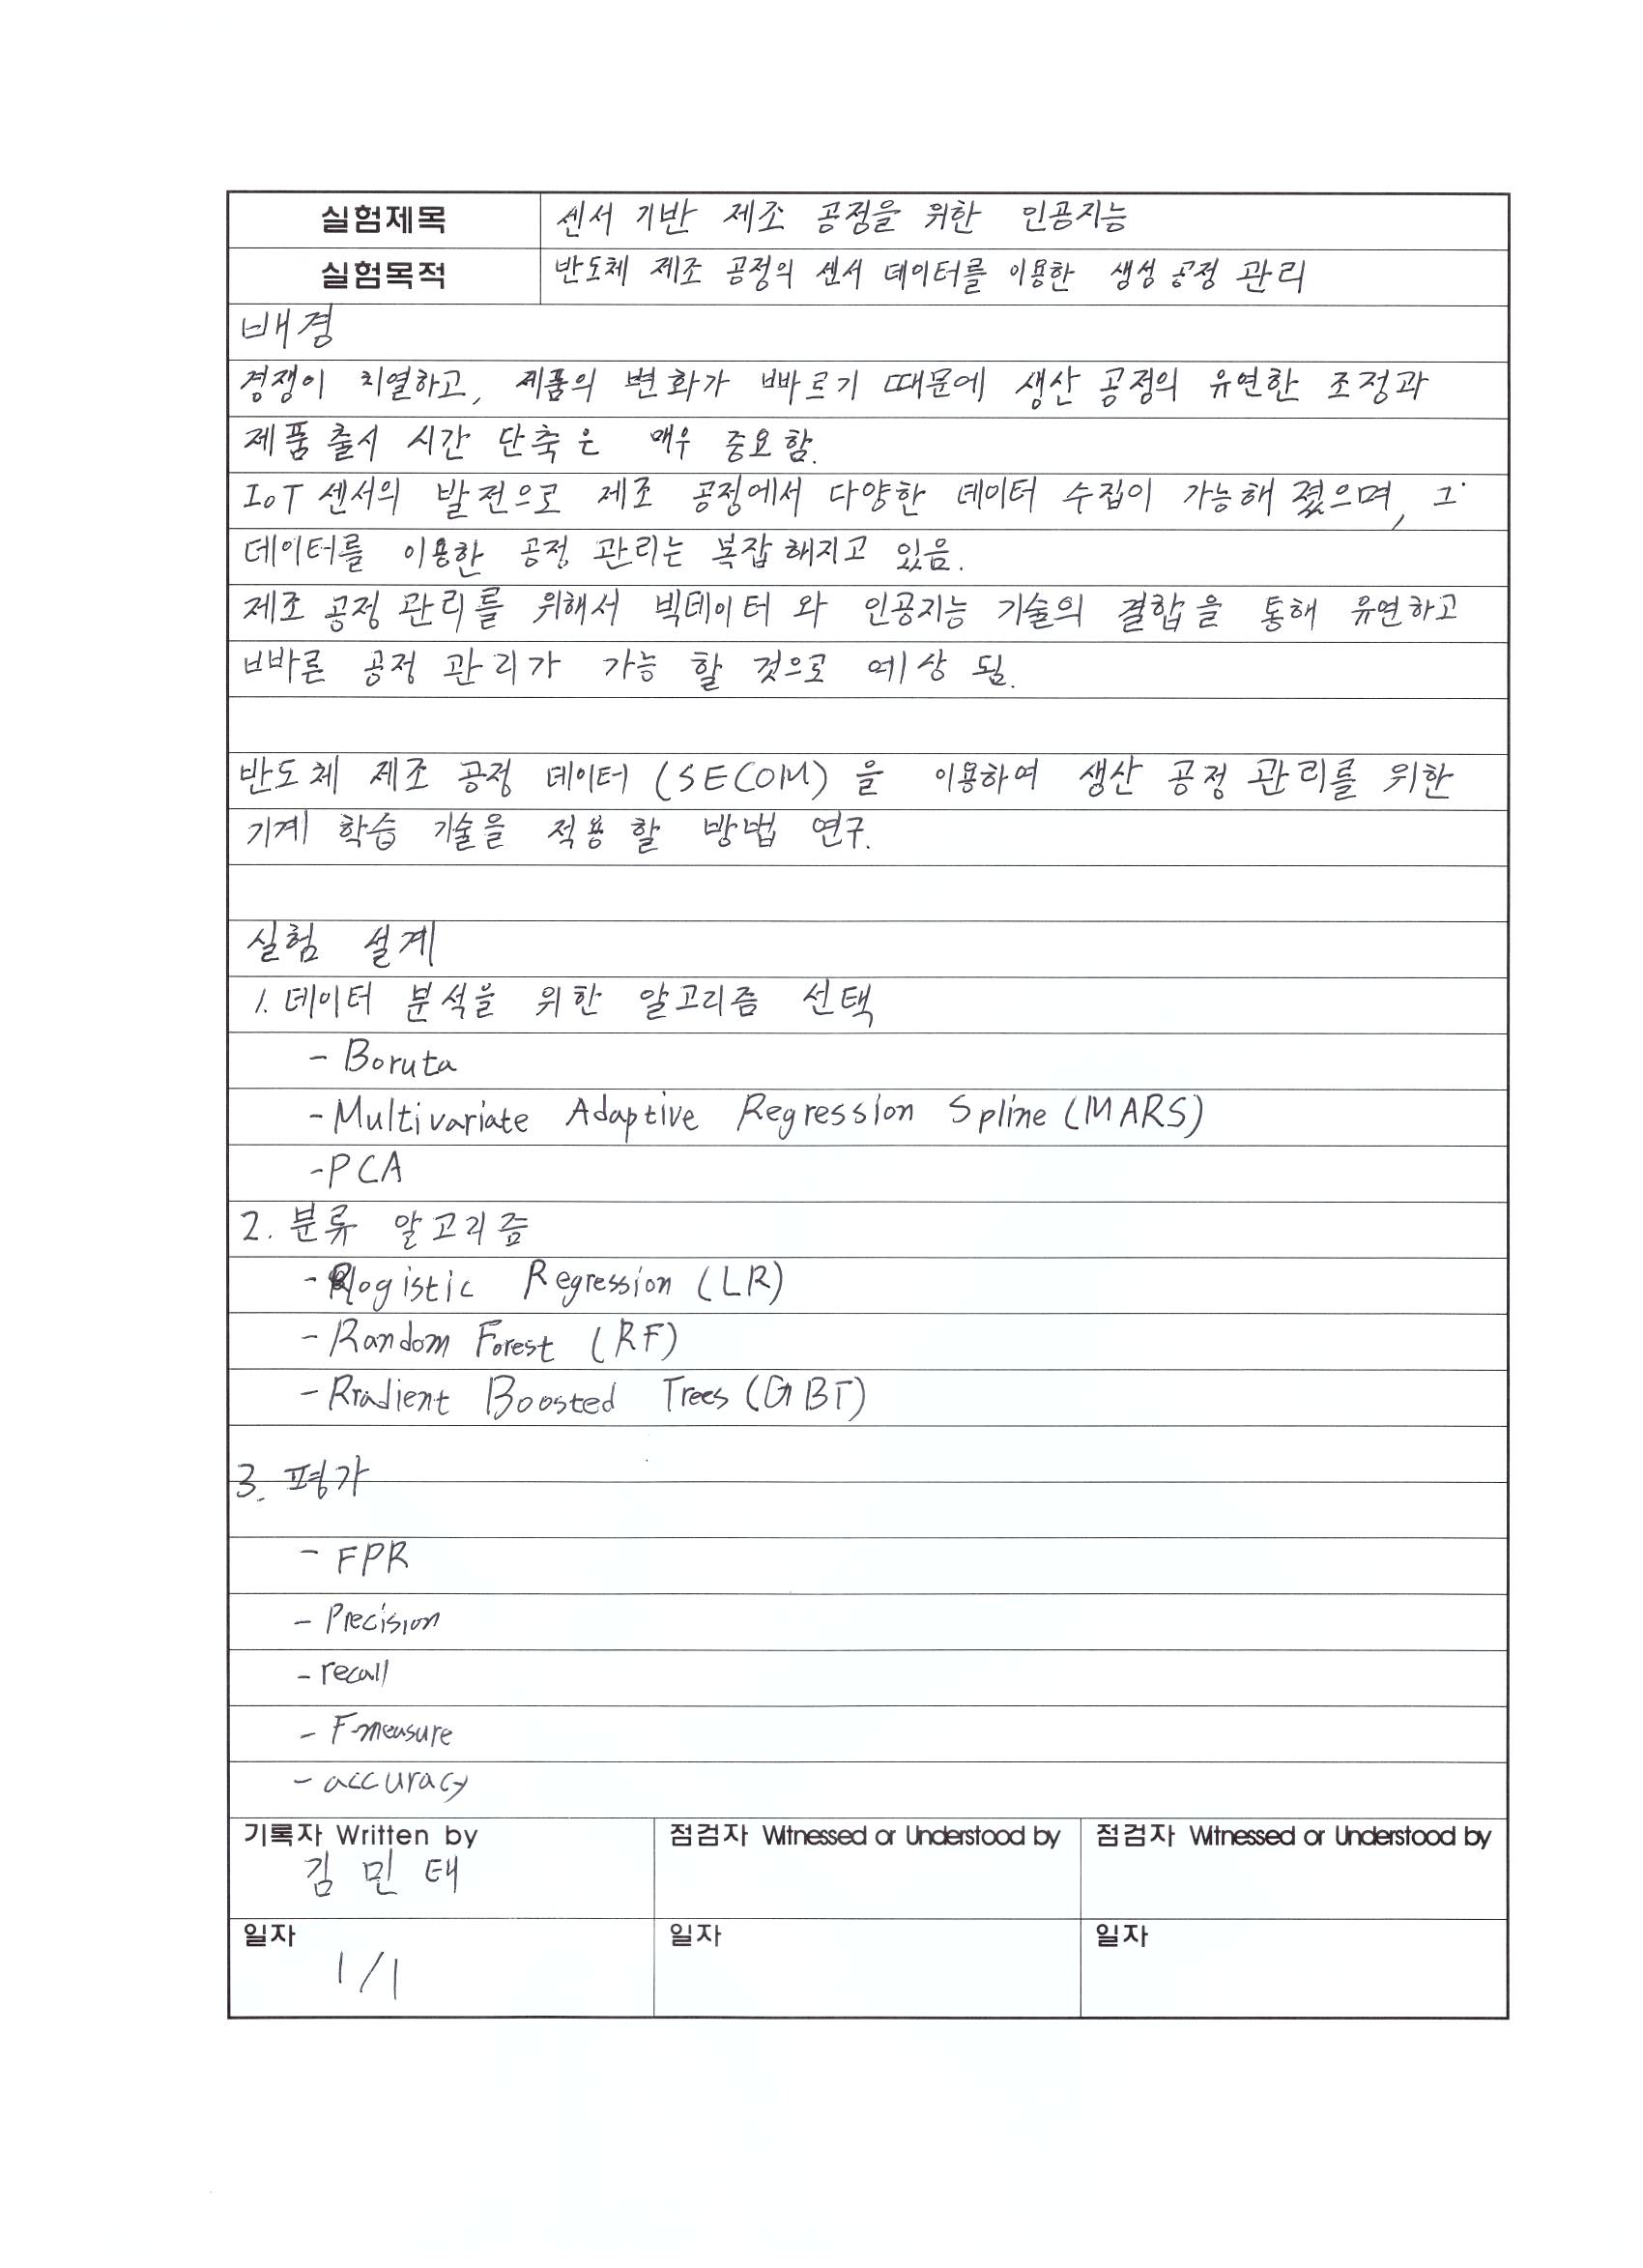 실험제목 센서 기반 제조 공정을 위한 인공지능
실험목적 반도체 제조 공정의 센서 데이터를 이용한 생성 공정 관리
배경
경쟁이 치열하고, 제품의 변화가 빠르기 때문에 생산 공정의 유연한 조정과
제품 출시 시간 단축은 매우 중요함.
IoT 센서의 발전으로 제조 공정에서 다양한 데이터 수집이 가능해 졌으며, 그
데이터를 이용한 공정 관리는 복잡해지고 있음.
제조 공정 관리를 위해서 빅데이터 와 인공지능 기술의 결합을 통해 유연하고
빠른 공정 관리가 가능 할 것으로 예상 됨.
반도체 제조 공정 데이터 (SECOM) 을 이용하여 생산 공정 관리를 위한
기계 학습 기술을 적용 할 방법 연구.
실험 설계
1. 데이터 분석을 위한 알고리즘 선택
- Boruta
- Multivariate Adaptive Regression Spline (MARS)
- PCA
2. 분류 알고리즘
- logistic Regression (LR)
- Random Forest (RF)
- Rradient Boosted Trees (GBT)
3. 평가
- FPR
- Precision
- recall
- F-measure
- accuracy
기록자 Written by 점검자 Witnessed or Understood by 점검자 Witnessed or Understood by
김 민 태
일자 일자 일자
1/1